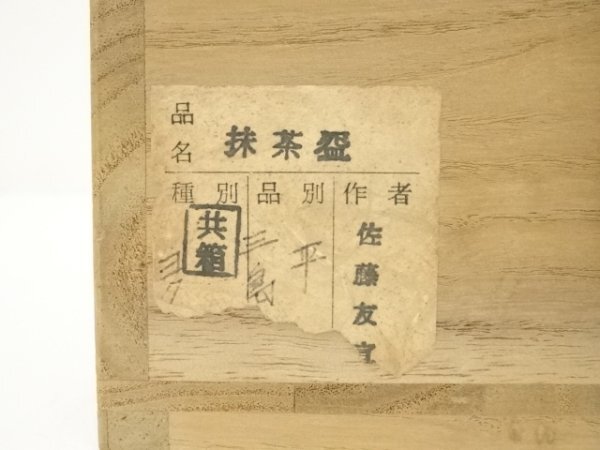 品名 抹茶盌
種別 品別 作者
共箱
ヨク
三島
平
佐藤友